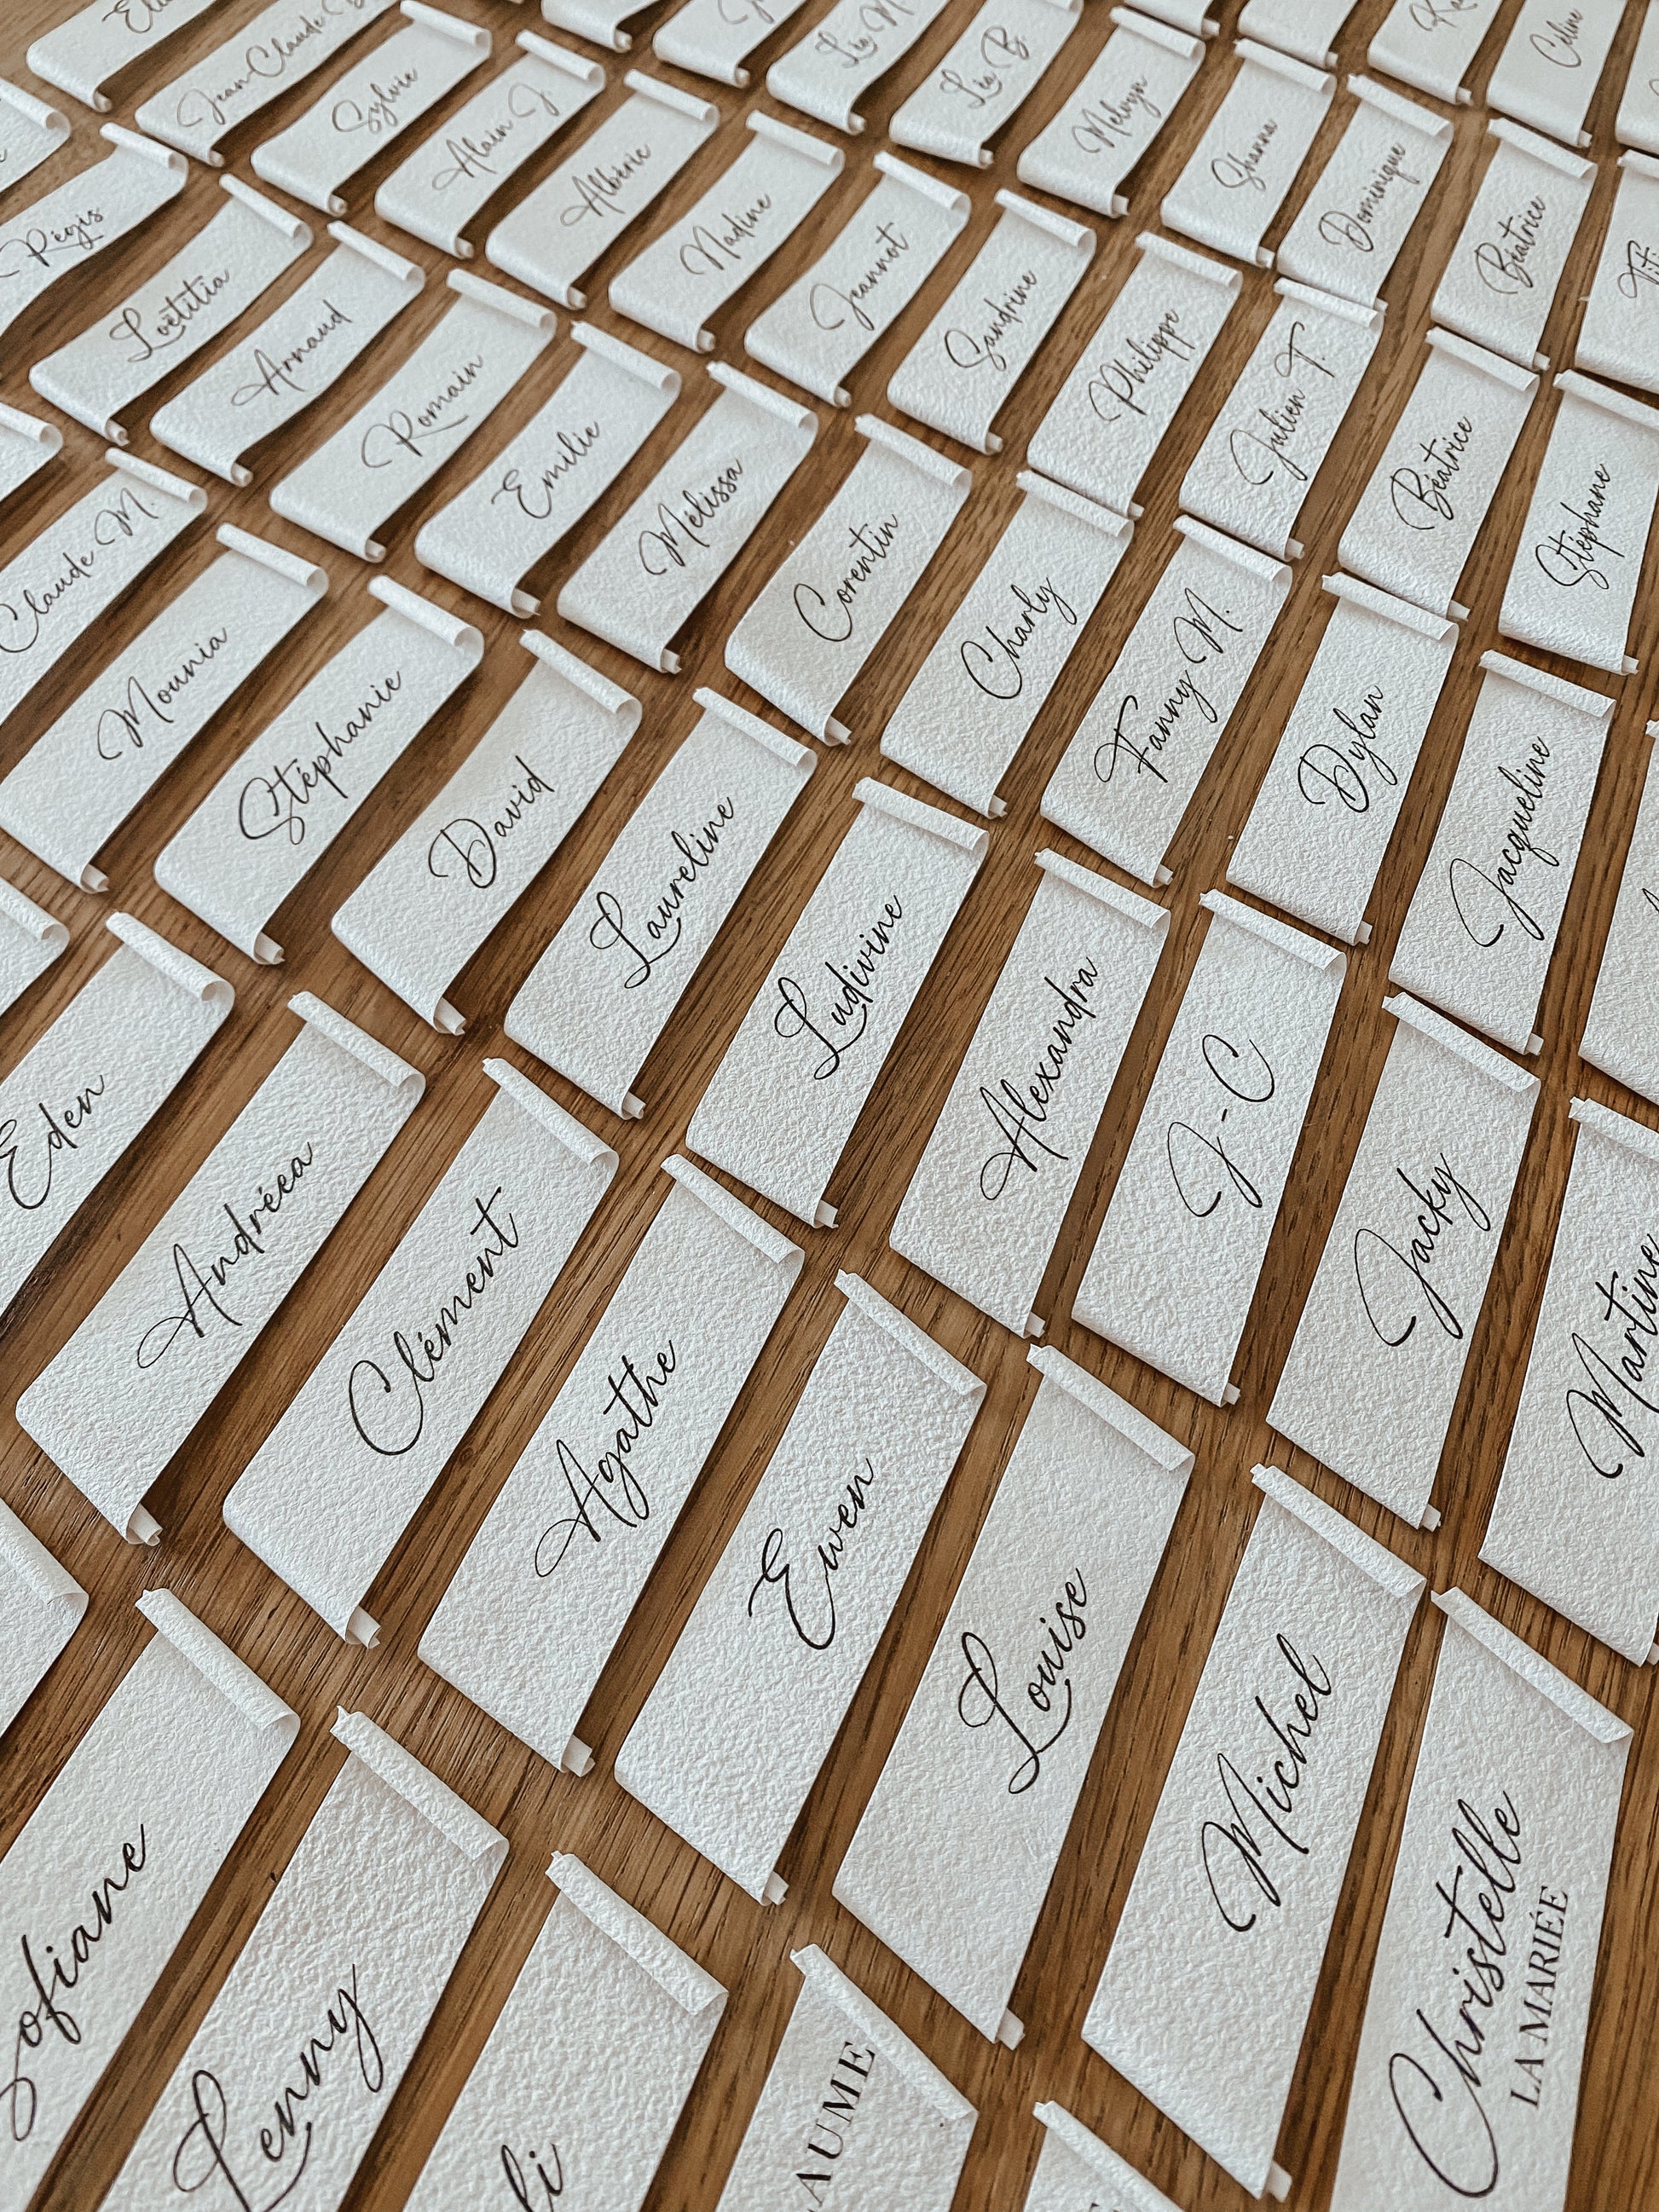 Jean-Claude B.
Sylvie
Alain J.
Albéric
Nadine
Jeannot
Sandrine
Philippe
Julien T.
Béatrice
Stéphane
Léa M.
Léa B.
Melvyn
Shanna
Dominique
Béatrice
Céline
Régis
Loëtitia
Arnaud
Romain
Emilie
Mélissa
Corentin
Charly
Fanny M.
Dylan
Jacqueline
Claude M.
Mounia
Stéphanie
David
Laureline
Ludivine
Alexandra
J-C
Jacky
Martine
Eden
Andréea
Clément
Agathe
Ewen
Louise
Michel
Christelle
LA MARIÉE
ofiane
Lenny
li
AUME